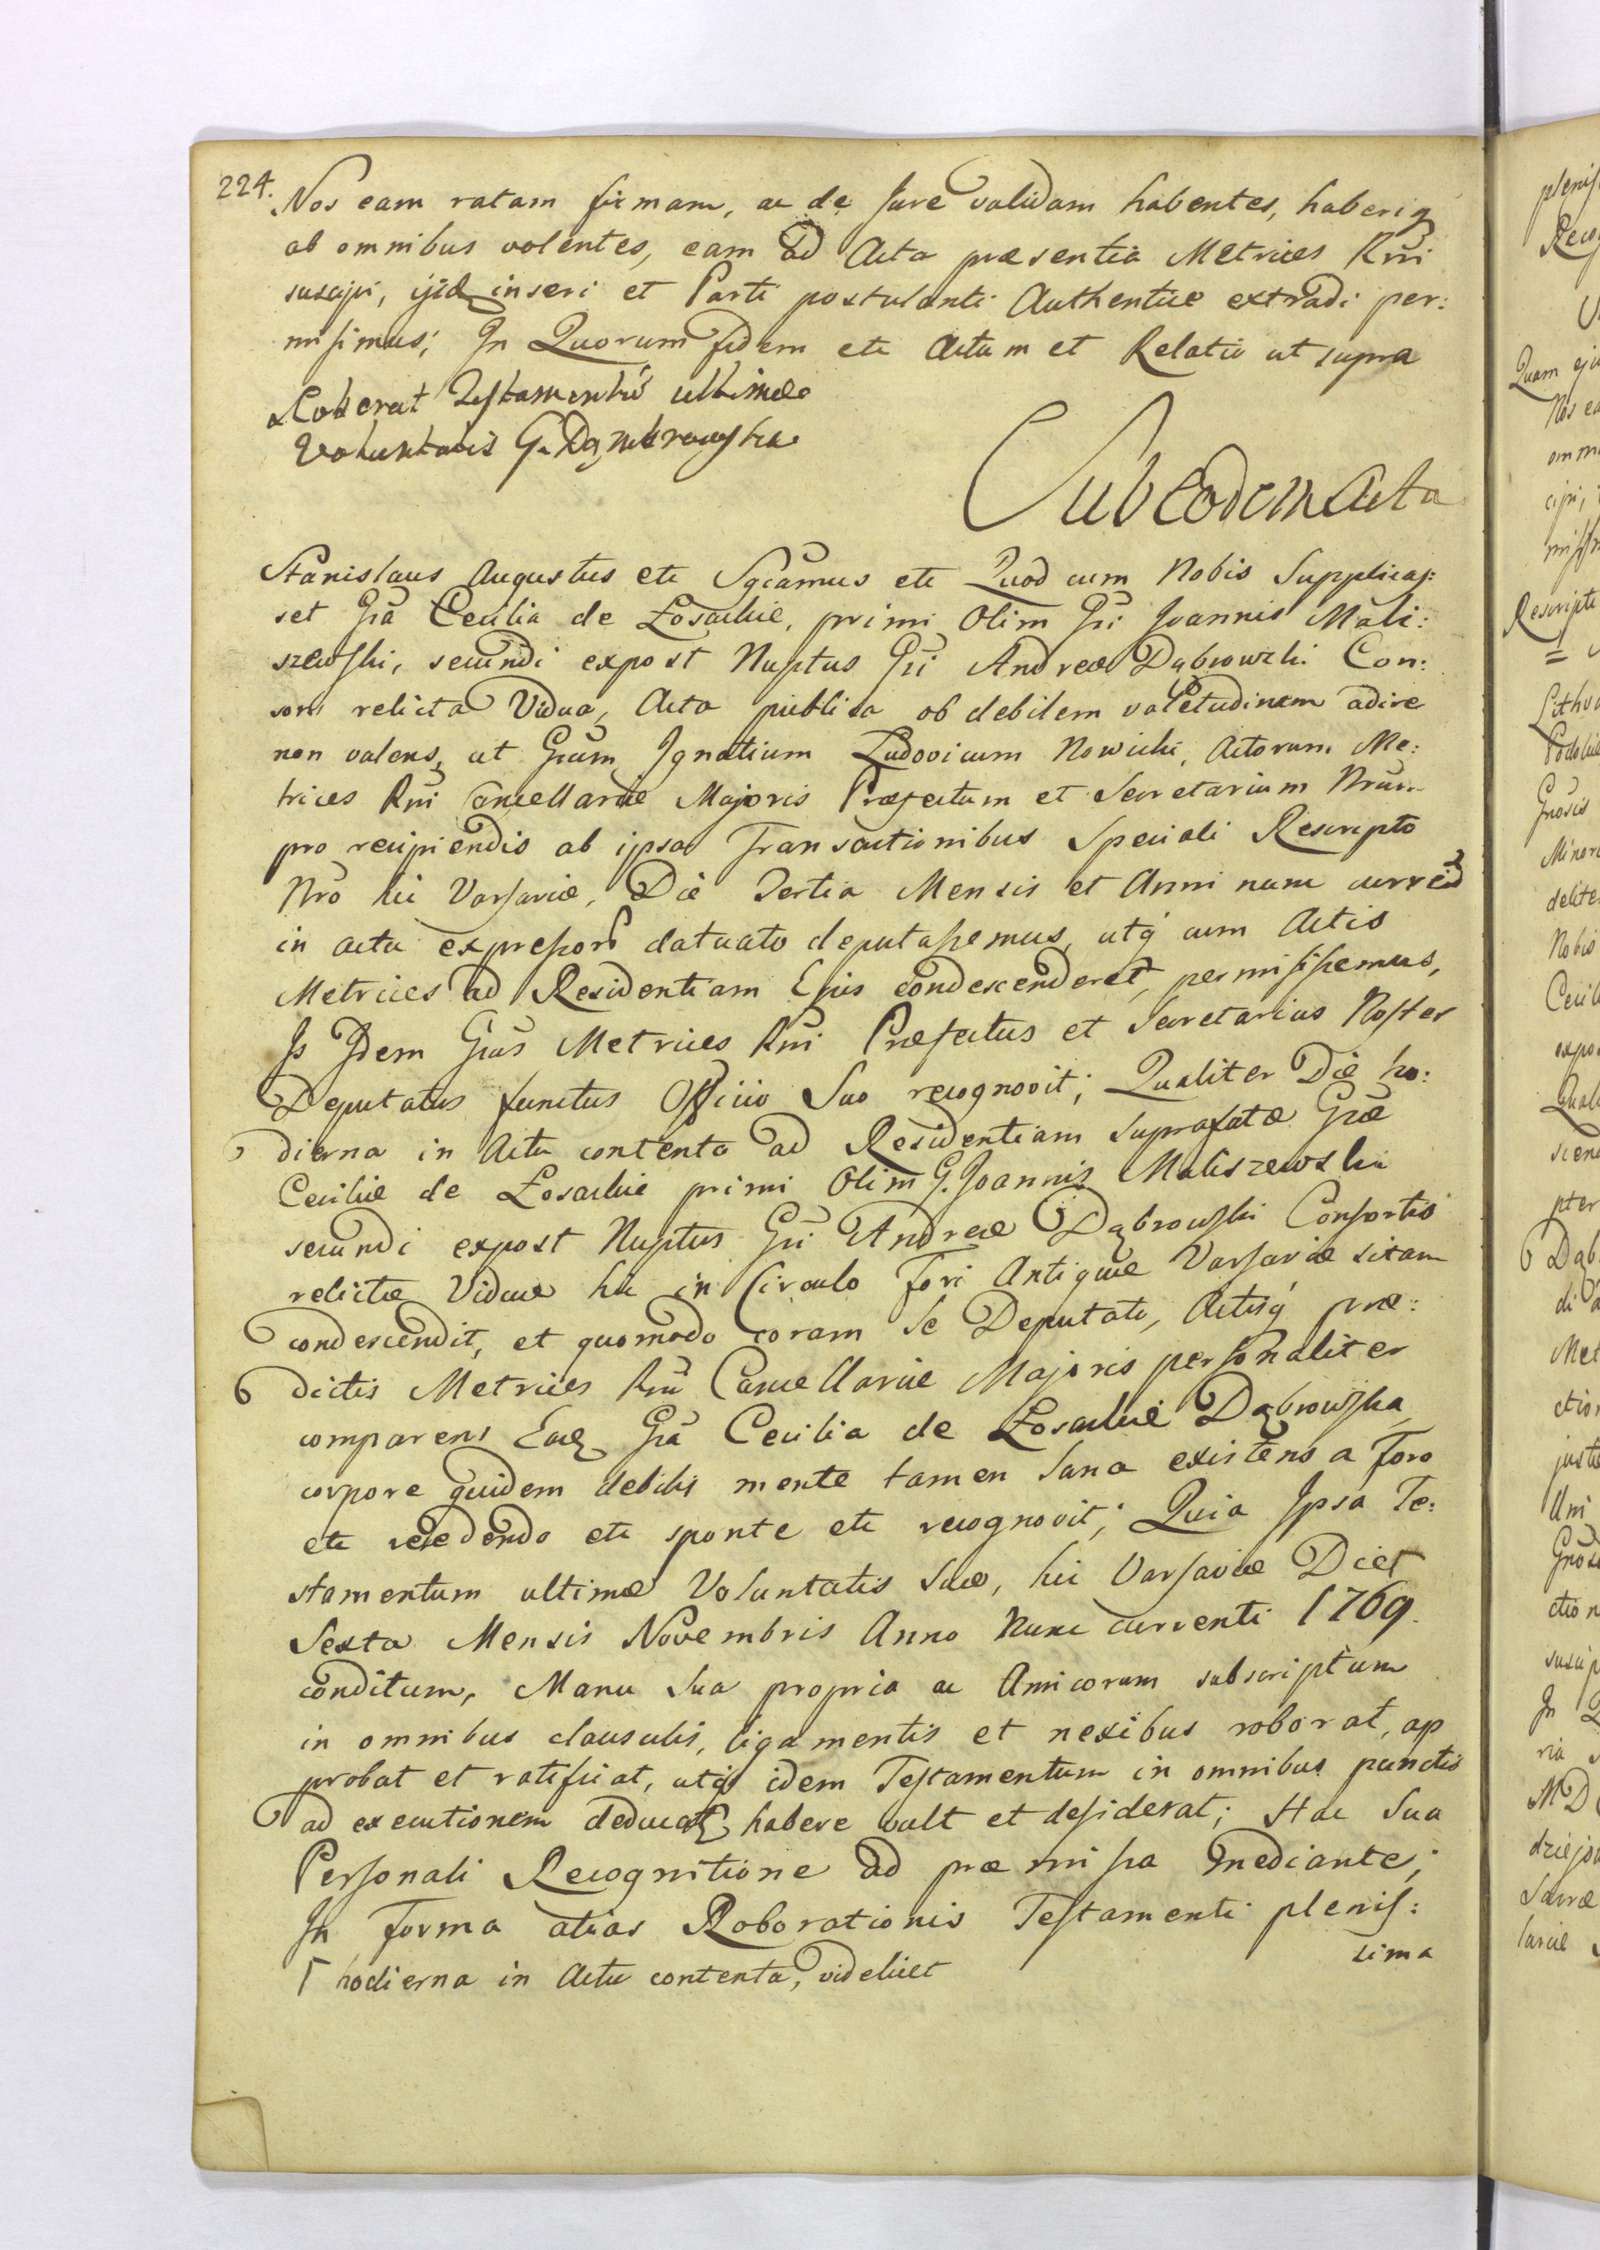 224.
Nos eam ratam firmam, ac de Jure validam habentes, haberiq
ab omnibus volentes, eam ad Acta præsentia Metrices Rni
suscipi, ijsdq inseri et Parti postulanti Authentice extradi per:
misimus; In Quorum fidem etc Actum et Relatio ut supra
Roborat Testamentū ultimæ
Voluntatis G. Dąmbrowska
Sub eodem Actu
Stanislaus Augustus etc Sgcamus etc Quod cum Nobis Supplicas:
set Gsa Cecilia de Łosackie, primi Olim Gsi Joannis Mali:
szewski, secundi expost Nuptus Gsi Andreæ Dąbrowski Con:
sors relicta Vidua, Acta publica ob debilem valetudinem adire
non valens, ut Gsum Ignatium Ludovicum Nowicki, Actorum Me:
trices Rni Cancellariæ Majoris Præfectum et Secretarium Nrum
pro recipiendis ab ipsa Transactionibus Speciali Rescripto
Nro hic Varsaviæ, Die Tertia Mensis et Anni nunc curren
in actu expressor datuato deputassemus, utq cum Actis
Metrices ad Residentiam Ejus condescenderet, permisissemus,
Is Idem Gsus Metrices Rni Præfectus et Secretarius Noster
Deputatus functus Officio Suo recognovit; Qualiter Die ho:
dierna in Actu contenta ad Residentiam suprafatæ Gsæ
Ceciliæ de Łosackie primi Olim G. Joannis Maliszewski
secundi expost Nuptus Gsi Andreæ Dąbrowski Consortis
relictæ Viduæ hic in Circulo Fori Antiquæ Varsaviæ sitam
condescendit, et quomodo coram Se Deputato, Actisq præ:
dictis Metrices Rni Cancellariæ Majoris personaliter
comparens Eadq Gsa Cecilia de Łosackie Dąbrowska
corpore quidem debilis mente tamen sana existens a Foro
etc recedendo etc sponte etc recognovit; Quia Ipsa Te:
stamentum ultimæ Voluntatis Suæ, hic Varsaviæ Die Γ
Sexta Mensis Novembris Anno Nunc currenti 1769.
conditum, Manu Sua propria ac Amicorum subscriptum
in omnibus clausulis, ligamentis et nexibus roborat, ap
probat et ratificat, utq idem Testamentum in omnibus punctis
ad executionem deducat habere vult et desiderat; Hac Sua
Personali Recognitione ad præmissa mediante;
In Forma alias Roborationis Testamenti plenis:
sima
Γ hodierna in Actu contenta, videlicet